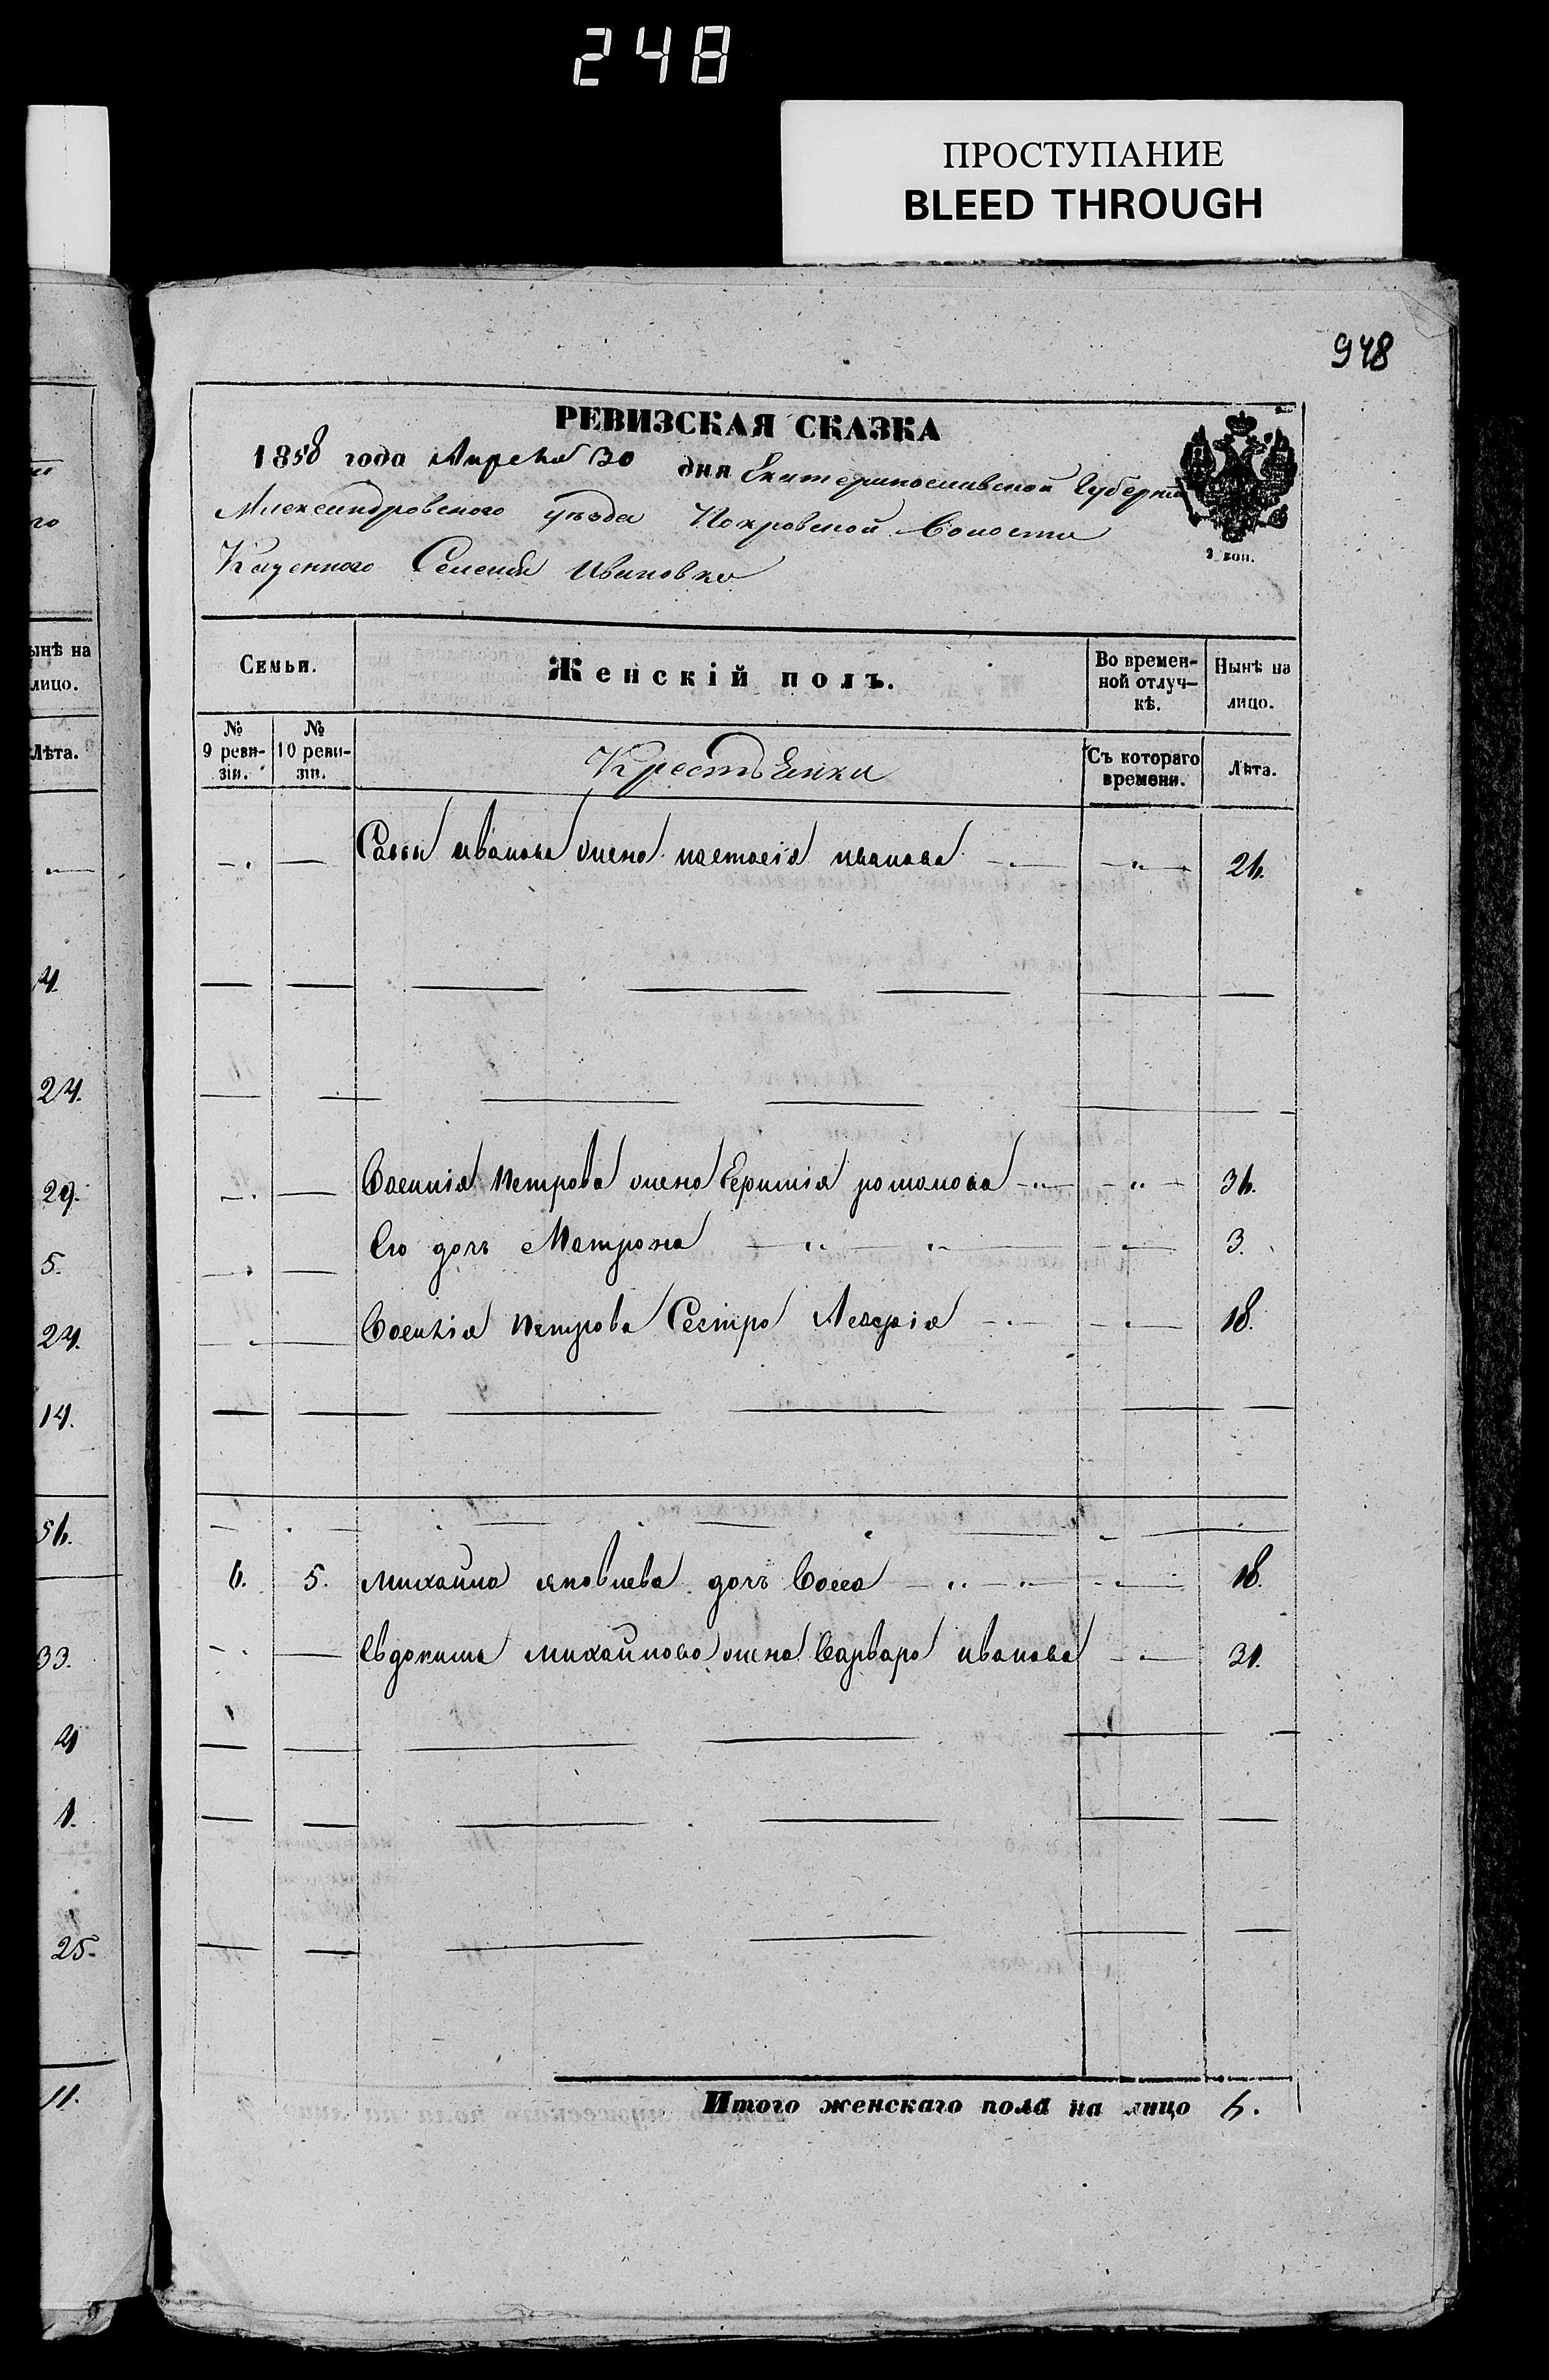 248
ПРОСТУПАНИЕ
BLEED THROUGH
948
РЕВИЗСКАЯ СКАЗКА
1858 года Апреля 30 дня Екатеринославской Губерніи
Александровского уѣзда Покровской Волости
Казенного Селенія Ивановки
2 коп.
Семьи.
Женскій полъ.
Во времен-
ной отлуч-
кѣ.
Нынѣ на
лицо.
№
9 реви-
зіи.
№
10 реви-
зіи.
Крестьянки
Съ котораго
времени.
Лѣта.
Савы иванова жена настасія иванова 26.
Василія Петрова жена романова 36.
Его дочь Матрона 3.
Василія Петрова Сестра 18.
6. 5. михаила яковлева дочь Васса 18.
Евдокима михайлова жена Варвара иванова 31.
Итого женскаго пола на лицо 6.
ынѣ на
лицо.
Лѣта.
4.
24.
29.
5.
24.
14.
56.
33.
4
1.
25.
11.